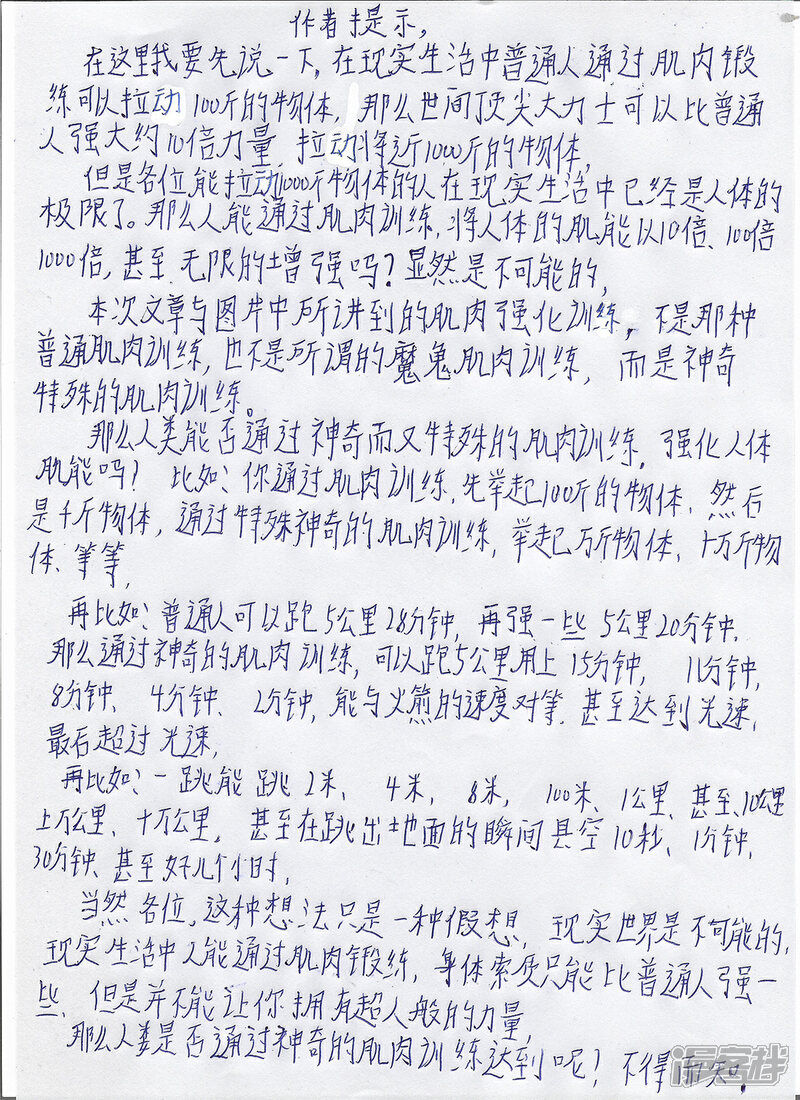 作者提示,
在这里我要先说一下,在现实生活中普通人通过肌肉锻
练可以拉动100斤的物体,那么世间顶尖大力士可以比普通
人强大约10倍力量,拉动将近1000斤的物体,
但是各位能拉动1000斤物体的人在现实生活中已经是人体的
极限了。那么人能通过肌肉训练,将人体的肌能以10倍、100倍
1000倍,甚至无限的增强吗?显然是不可能的,
本次文章与图片中所讲到的肌肉强化训练,不是那种
普通肌肉训练,也不是所谓的魔鬼肌肉训练,而是神奇
特殊的肌肉训练。
那么人类能否通过神奇而又特殊的肌肉训练,强化人体
肌能吗?比如、你通过肌肉训练,先举起100斤的物体、然后
是千斤物体,通过特殊神奇的肌肉训练,举起万斤物体、十万斤物
体、等等,
再比如、普通人可以跑5公里28分钟,再强一些5公里20分钟.
那么通过神奇的肌肉训练,可以跑5公里用上15分钟,11分钟,
8分钟、4分钟、2分钟,能与火箭的速度对等.甚至达到光速,
最后超过光速,
再比如、一跳能跳2米、4米,8米,100米、1公里、甚至、10公里
上万公里、十万公里,甚至在跳出地面的瞬间悬空10秒、1分钟,
30分钟、甚至好几个小时,
当然各位,这种想法只是一种假想,现实世界是不可能的,
现实生活中人能通过肌肉锻练,身体素质只能比普通人强一
些、但是并不能让你拥有超人般的力量,
那么人类是否通过神奇的肌肉训练达到呢?不得而知.
漫客栈